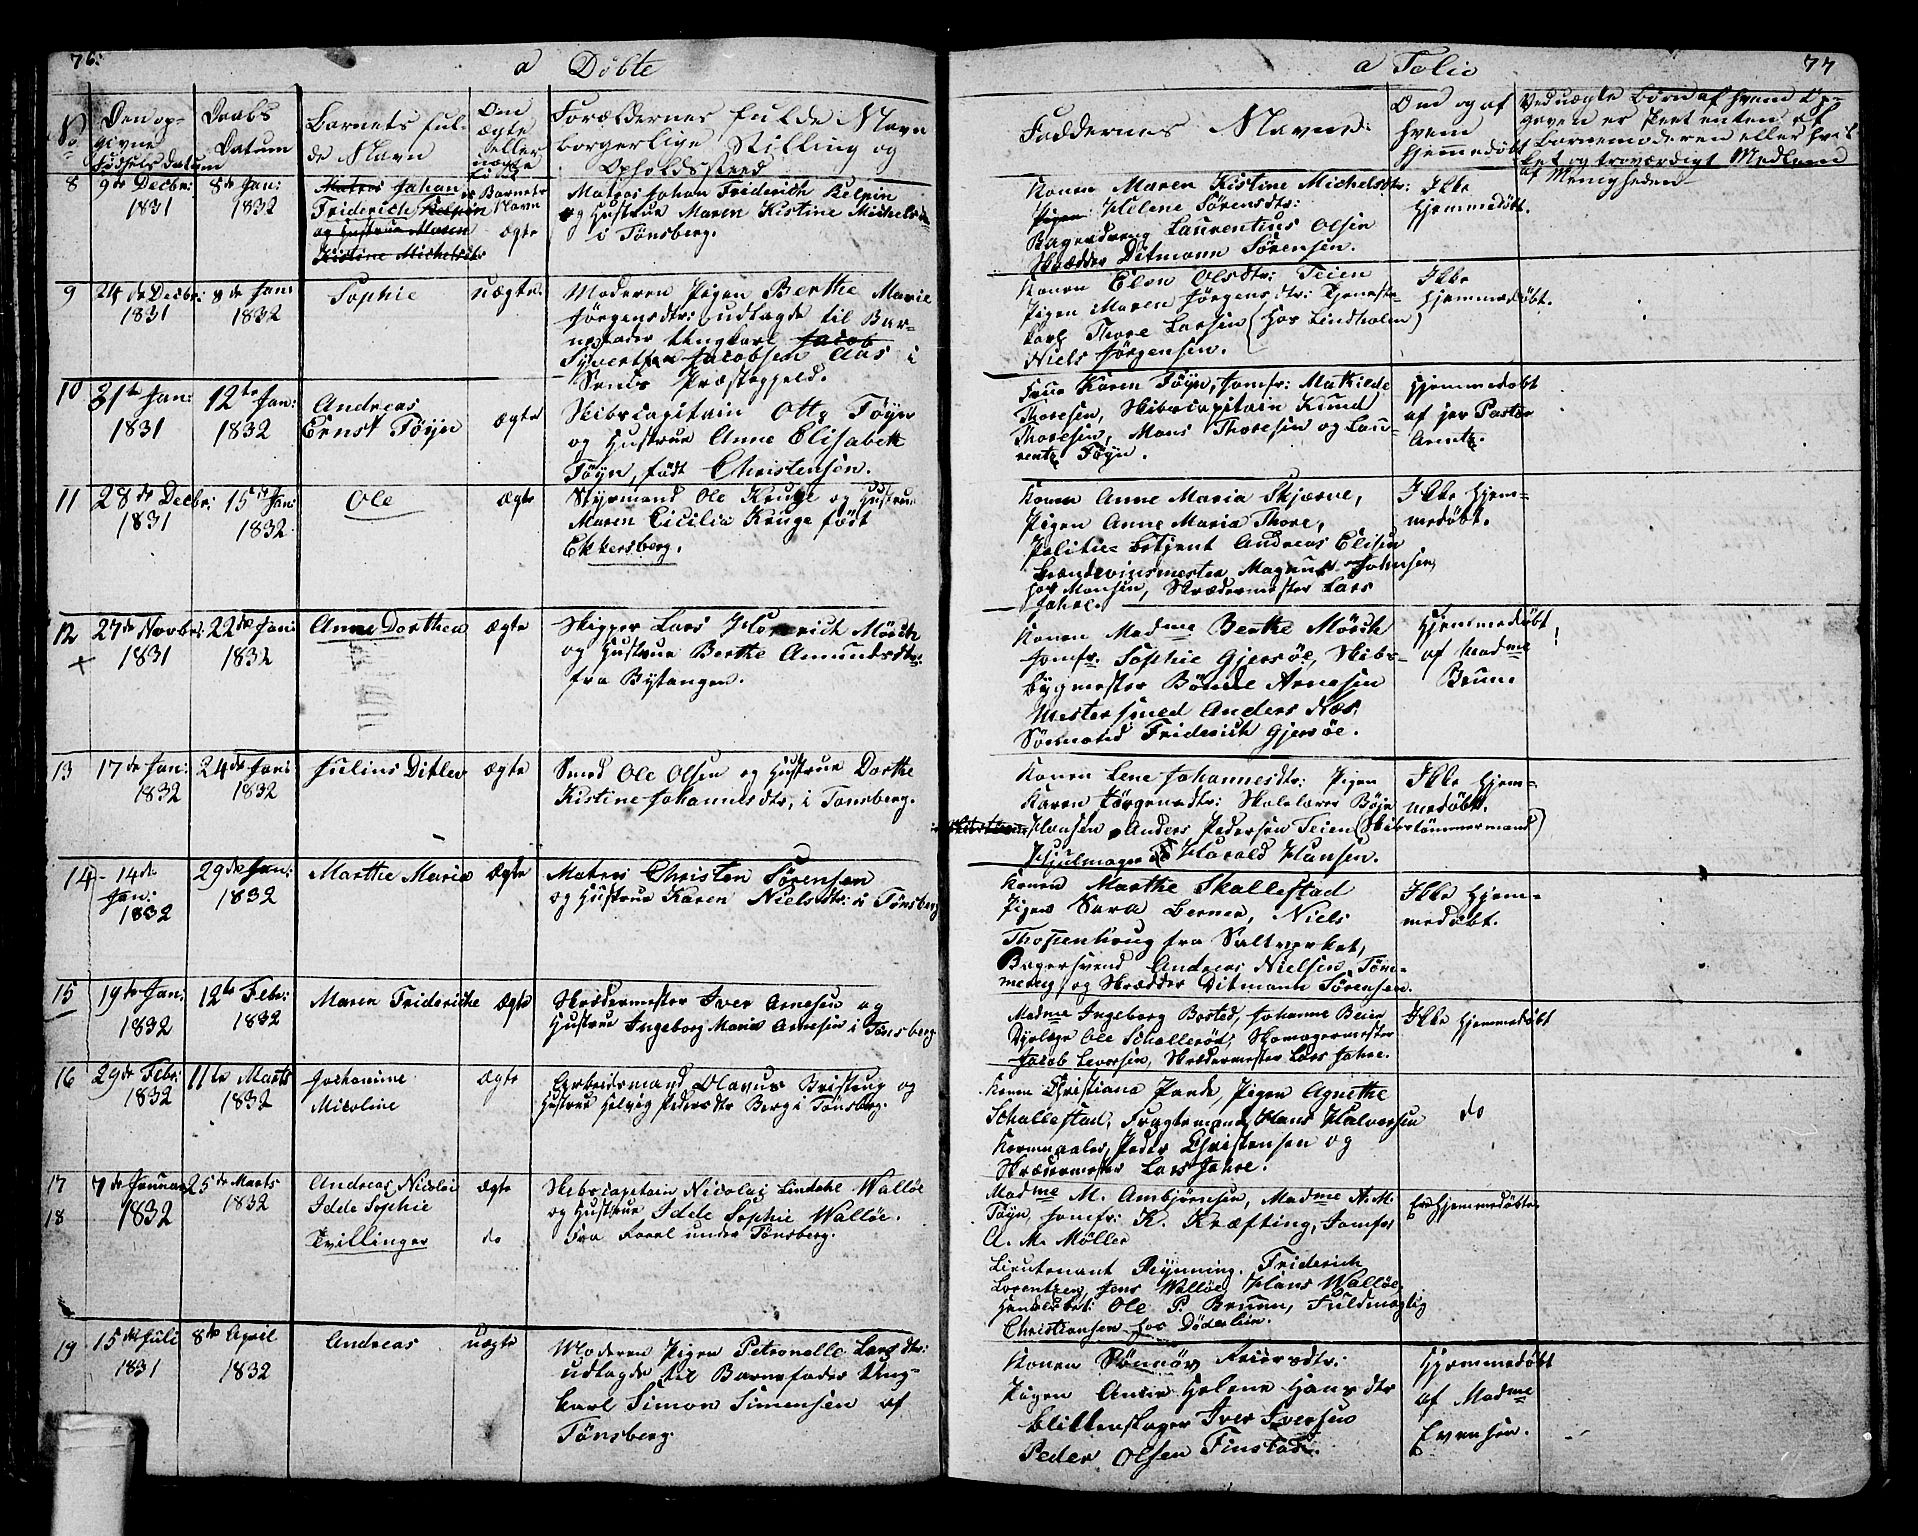 76.
a Döbte
No
Den op-
givne
Födsels datum
Daabs
Datum
Barnets ful-
de Navn
Om
ægte
eller
uægte
Forældernes fulde Navn
borgerlige Stilling og
Opholdssted
8
9de Decbr:
1831
8de Jan:
1832
Matros Johan
Friderich
og Hustrue Maren
Kistine Michelsdtr
Barnets
Navn
ægte
Matros Johan Friderich Belpin
og Hustrue Maren Kistine Michelsd
i Tönsberg.
9
24de Decbr:
1831
8de Jan:
1832
Sophie
uægte.
Moderen Pigen Berthe Marie
Jörgensdtr: udlagde til Bar-
nefader Ungkarl Jacob
Syvertsen Jacobsen Aas i
Sems Præstegjeld.
10
31te Jan:
1831
12te Jan:
1832
Andreas
Ernst Töyn
ægte
Skibscapitain Otto Töyn
og Hustrue Anne Elisabeth
Töyn, född Christensen.
11
28de Decbr:
1831
15de Jan:
1832
Ole
ægte
Styrmand Ole Kruge og Hustrue
Maren Cicilia Kruge född
Ekkersberg.
12
27de Novbr:
1831
22de Jan:
1832
Anne Dorthea
ægte
Skipper Lars Mörch
og Hustrue Berthe Amundsdtr:
fra Bytangen.
13
17de Jan:
1832
24de Jan:
1832
Julius Ditlev
ægte
Smed Ole Olsen og Hustrue Dorthe
Kistine Johannesdtr, i Tönsberg.
14
14de
Jan:
1832
29de Jan:
1832
Marthe Maria
ægte
Matros Christen Sörensen
og Hustrue Karen Nielsdtr: i Tönsberg
15
19de Jan:
1832
12te Febr:
1832
Maren Frideriche
ægte
Skrædermester Iver Arnesen og
Hustrue Ingeborg Maria Arnesen i Tönsberg
16
29de Febr:
1832
11te Marts
1832
Johanne
Nicoline
ægte
Arbeidsmand Olavus Bristrup og
Hustrue Helvig Pedersdtr Berg i Tönsberg.
17
18
7de Januar
1832
25de Marts
1832
Andreas Nicolai
Idde Sophie
Tvillinger
ægte
do
Skibscapitain Nicolai Lindahl Wallöe
og Hustrue Idde Sophie Wallöe.
fra under Tönsberg.
19
15de Juli
1831
8de April
1832
Andreas
uægte
Moderen Pigen Petronelle Larsdtr:
udlagde til Barnefader Ung-
karl Simon Simensen af
Tönsberg.
a Folio
77
Faddernes Navne:
Om og af
hvem
hjemmedöbt
Ved uægte Börn af hvem Op-
given er skeet enten af
Barnemoderen eller hvil-
ket og troværdigt Medlem
af Menigheden
Konen Maren Kistine Michelsdtr:
Pigen Helene Sörensdtr:
Bagerdreng Laurentius Olsen
Skrædder Ditmann Sörensen.
Ikke
hjemmedöbt.
Konen Elen Olsdtr: Teien
Pigen Maren Jörgensdtr: Tjeneste-
karl Thore Larsen (hos Lindholm)
Niels Jörgensen.
Ikke
hjemmedöbt.
Frue Karen Töyn, Jomfr: Mathilde
Thoresen, Skibscapitain Knud
Thoresen, Mons Thoresen og Lau-
rentz Töyn.
Hjemmedöbt
af hr Pastor
Arentz.
Konen Anne Maria Skjærve,
Pigen Anne Maria Thore,
Politie Betjent Andreas Elisen
Brændevinsmester Magnus Johnsen,
hos Monsen, Skrædermester Lars
Jahre.
Ikke hjem-
medöbt.
Konen Madme Berthe Mörch
Jomfr. Sophie Gjersöe, Skibs-
bygmester Bönde Arnesen
Mestersmed Anders Næs.
Sömated Friderich Gjersöe.
Hjemmedöbt
af Madme
Bruun
Konen Lene Johannesdtr: Pigen
Karen Jörgensdtr: Skolelærer Böje
Hansen Anders Pedersen Teien (Skibstömmermand)
Hjulmager Harald Hansen.
Ikke hjem-
medöbt.
Konen Marthe Skallestad
Pigen Sara Berner, Niels
Thossenhoug fra Saltværket,
Bagersvend Andreas Nielsen Töm-
merey, og Skrædder Ditmann Sörensen.
Ikke hjem-
medöbt.
Madme Ingeborg Bosted, Johanne Beier
Dyrlæge Ole Schalleröd, Skomagermester
Jacob Leversen, Skrædermester Lars Jahre.
Ikke hjemmedöbt
Konen Christiana Pande, Pigen Agnethe
Schallestad, Fragtemand Hans Halvorsen
Kornmaaler Peder Christensen og
Skrædermester Lars Jahre.
do
Madme M. Ambjörnsen, Madme N. M.
Töyn, Jomfr: K. Kræfting, Jomfr
A. M. Möller
Lieutenant Rynning. Friderich
Lorentzen, Jens Wallöe, Hans Wallöe,
Handelsbet: Ole P. Bruun, Fuldmægtig
Christiansen hos Döderlein.
Er hjemmedöbte
Konen Sönnöv Reiersdtr:
Pigen Anne Helene Hansdtr
Blikkenslager Iver Iversen
Peder Olsen Finstad.
Hjemmedöbt
af Madme
Evensen.